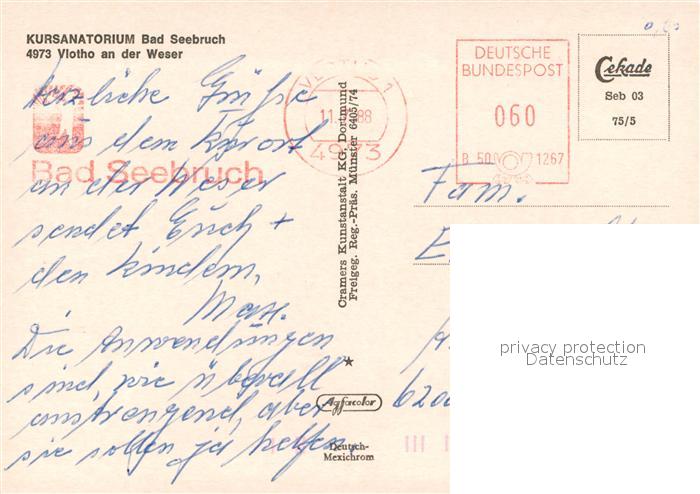 KURSANATORIUM Bad Seebruch
4973 Vlotho an der Weser
Herzliche Grüße
aus dem Kurort
an der Weser
sendet Euch +
den Kindern,
Max.
Die Anwendungen
sind, wie überall
anstrengend, aber
sie sollen ja helfen.
Bad Seebruch
VLOTHO 1
88
4973
DEUTSCHE
BUNDESPOST
060
B 50 1267
Cekade
Seb 03
75/5
Cramers Kunstanstalt KG, Dortmund
Freigeg. Reg.-Präs. Münster 6405/74
Agfacolor
Deutsch-
Mexichrom
Fam.
620
privacy protection
Datenschutz